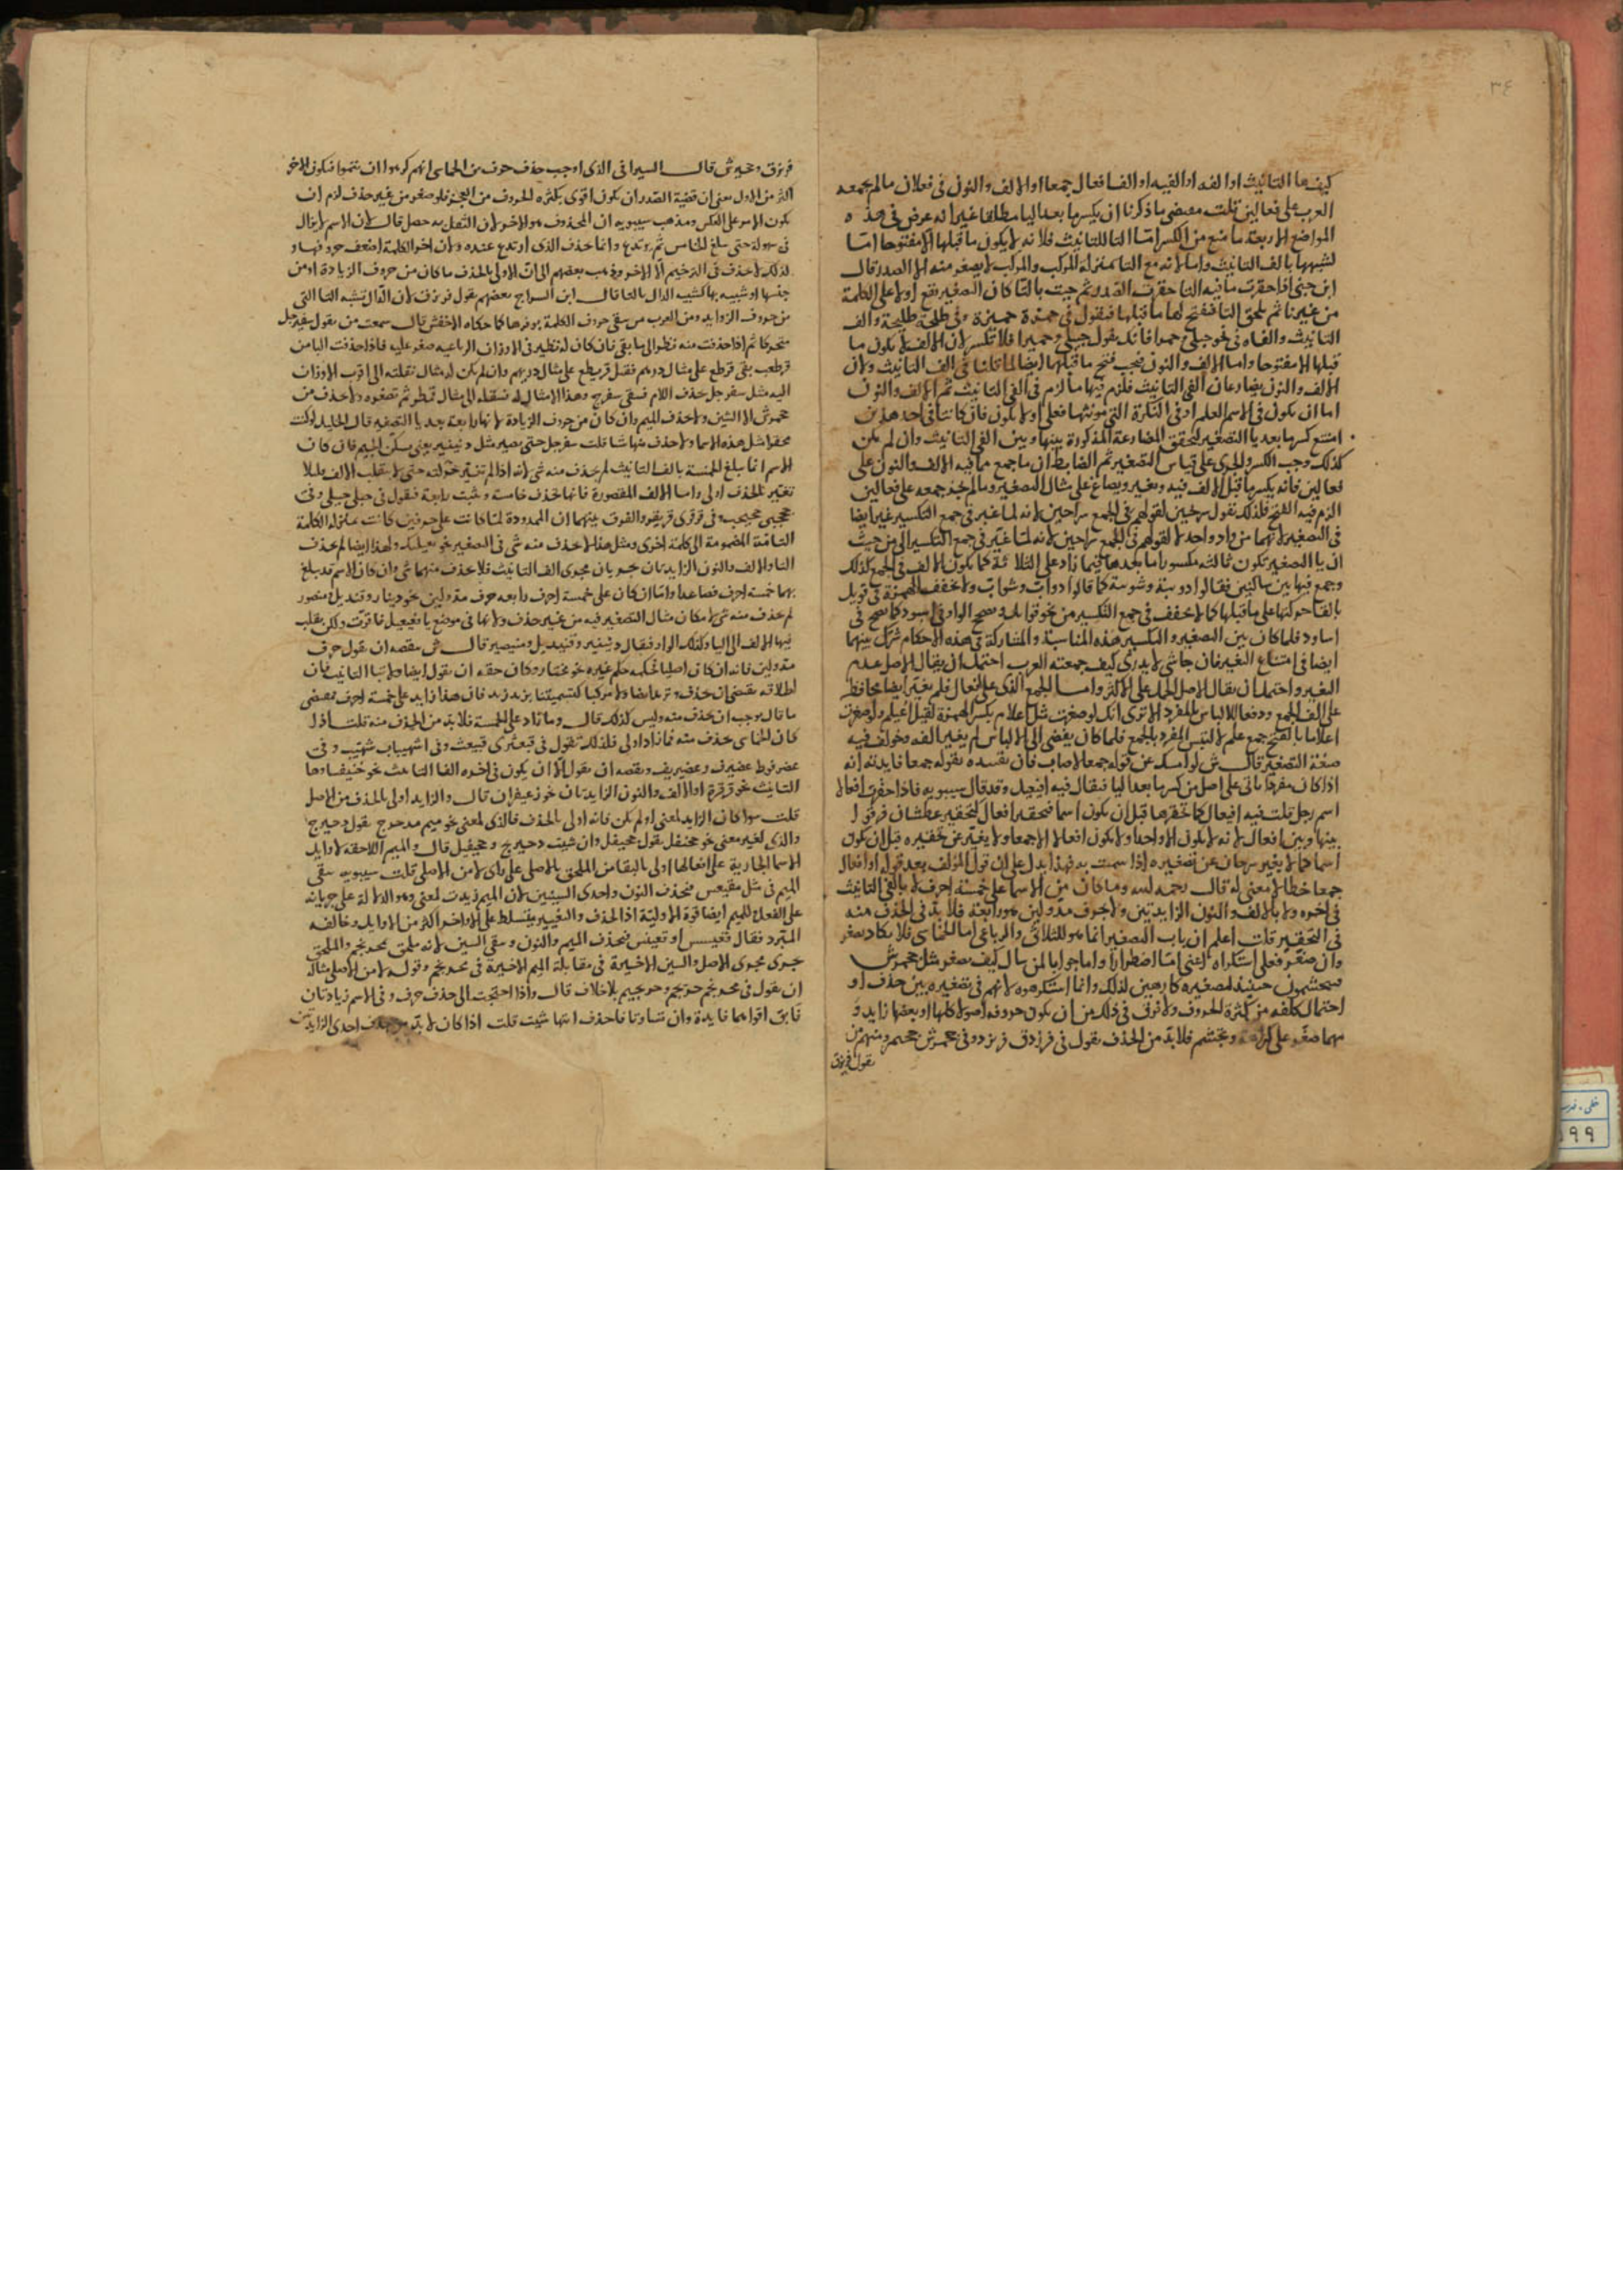 ٣٤
كيفها التانيث او الفه او الفيه او الف افعال جمعا او الالف والنون في فعلان مالم يجمعه
العرب على فعالين قلت مقتضى ما ذكرنا ان يكسر ما بعد اليا مطلقا غير انه عرض في هذه
المواضع الاربعة ما منع من الكسر امّا التا للتانيث فلانه لا يكون ما قبلها الا مفتوحا امّا
لشبهها بالف التانيث واما لانه مع التا بمنزلة المركب والمركب لا يصغر منه الا الصدر قال
ابن جنى اذا حقرت ما فيه التا حقرت الصدر ثم جيت بالتا كان التصغير يقع اولا على الكلمة
من غير تا ثم يلحق التا فتفتح لها ما قبلها فتقول في حمزة حميزة وفي طلحة طليحة والف
التانيث والفاه في نحو حبلى حمرا فانك تقول حبيلى وحميرا فلا تكسر لان الالف لا يكون ما
قبلها الا مفتوحا واما الالف والنون فيجب فتح ما قبلها ايضا لما قلنا في الف التانيث ولان
الالف والنون يضارعان الفي التانيث فلزم فيها ما لزم في الفي التانيث ثم الالف والنون
اما ان يكون في الاسم العلم او في النكرة التي مونثها فعلى او لا يكون فان كانتا في احد هذين
امتنع كسرها بعد يا التصغير لتحقق المضارعة المذكورة بينها وبين الفي التانيث وان لم يكن
كذلك وجب الكسر والجرى على قياس التصغير ثم الضابط ان ما جمع ما فيه الالف والنون على
فعالين فانه يكسر ما قبل الالف فيه ويغير ويصاغ على مثال التصغير وما لم يجد جمعه على فعالين
الزم فيه الفتح فلذلك تقول سريحين لقولهم في الجمع سراحين لانه لما غير في جمع التكسير غير ايضا
في التصغير لانهما من واد واحد لقولهم في الجمع سراحين لانه لما غير في جمع التكسير الى من حيث
ان يا التصغير تكون ثالثة مكسورا ما بعدها فيما زاد على الثلاثة كما يكون الالف في الجمع كذلك
وجمع فيها بين ساكنين فقالوا دويبة وشويبة كما قالوا دوابّ وشوابّ ولا تخفف الهمزة في قويل
بالقا حركتها على ما قبلها كما لا تخفف في جمع التكسير من نحو قوايل وصحح الواو في اسيود كما صح في
اساود فلما كان بين التصغير والتكسير هذه المناسبة والمشاركة في هذه الاحكام شرك بينهما
ايضا في امتناع التغير فان جا شي لا يدرى كيف جمعته العرب احتمل ان يقال الاصل عدم
التغير واحتمل ان يقال الاصل الحمل على الاكثر وامـا الجمع الذي على افعال فلم يغير ايضا محافظة
على الف الجمع ودفعا للالباس بالمفرد الا ترى انك لو صغرت مثل اعلام بكسر الهمزة لقيل اعيليم ولو صغرت
اعلاما بالفتح جمع علم لالتبس المفرد بالجمع فلما كان يفضى الى الالباس لم يغير الفه وخولف فيه
صيغة التصغير قال ش لو امسك عن قوله جمعا لاصاب فان تقييده بقوله جمعا فايدته انه
اذا كان مفردا باق على اصل من كسر ما بعد اليا فيقال فيه افيعيل وقد قال سيبويه فاذا حقرت افعالا
اسم رجل قلت فيه افيعال كما تحقرها قبل ان يكون اسما فتحقير افعال كتحقير عطشان فرقوا
بينها وبين افعال لانه لا يكون الا واحدا ولا يكون افعالا الا جمعا ولا يغير عن تحقيره قبل ان يكون
اسما كما لا يغير سرحان عن تصغيره اذا سميت به فهذا يدل على ان قول المولف بعد قوله او افعال
جمعا خطا لا معنى له قال رحمه الله وما كان من الاسما على خمسة احرف لا بالفي التانيث
في اخره ولا بالالف والنون الزايدتين ولا بحرف مدّ ولين هو رابعة فلا بدّ في الحذف منه
في التحقير قلت اعلم ان باب التصغير انما هو للثلاثي والرباعي اما الخماسى فلا يكاد يصغر
وان صغر فعلى استكراه اعنى امّا اضطرارا واما جوابا لمن سال كيف يصغر مثل جحمرش
فيتجشمون حينئذ لتصغيره كارهين لذلك وانما استكرهوه لانهم في تصغيره بين حذف او
احتمال كلفة من كثرة الحروف ولا فرق في ذلك من ان يكون حروفه اصولا كلها او بعضها زايد و
مهما صغّر على كراهة وتجشم فلا بدّ من الحذف تقول في فرزدق فريزد وفي جحمرش جحيمر ومنهم من
يقول فريزق
فريزق وجحيرش قال السيرافى الذى اوجب حذف حرف من الخماسي انهم كرهوا ان يتموا فيكون الاخر
اكثر من الاول يعنى ان قضية الصدر ان يكون اقوى بكثرة الحروف من العجز فلو صغر من غير حذف لزم ان
يكون الامر على العكس ومذهب سيبويه ان المحذوف هو الاخر لان الثقل به حصل قال لان الاسم لا يزال
في سهولة حتى يبلغ الخامس ثم يرتدع وانما حذف الذى ارتدع عنده ولان اخر الكلمة اضعف حروفها و
لذلك لا حذف في الترخيم الا الاخر وذهب بعضهم الى انّ الاولى بالحذف ما كان من حروف الزيادة او من
جنسها او شبيه بها كشبيه الدال بالتا قال ابن السراج بعضهم يقول فريزق لان الدال تشبه التا التي
من حروف الزوايد ومن العرب من يبقى حروف الكلمة بوفرها كما حكاه الاخفش قال سمعت من يقول سفيرجل
متحركا ثم اذا حذفت منه نظر الى ما بقى فان كان له نظير في الاوزان الرباعية صغر عليه فاذا حذفت البا من
قرطعب بقى قرطع على مثال درهم فقيل قريطع على مثال دريهم وان لم يكن له مثال نقلته الى اقرب الاوزان
اليه مثل سفرجل حذف اللام فبقى سفرج وهذا لا مثال له فنقله الى مثال قمطر ثم تصغره ولا حذف من
جحمرش الا الشين ولا حذف الميم وان كان من حروف الزيادة لانها رابعة بعد يا التصغير قال الخليل لو كنت
محقرا مثل هذه الاسما ولا احذف منها شيا قلت سفيرجل حتى يصير مثل دنينير يعنى بسكن الجيم فان كان
الاسم انما يبلغ الخمسة بالف التانيث لم يحذف منه شي لانه اذا لم تغير حركته حتى لا يقلب الالف فليلا
تغير بالحذف اولى واما الالف المقصورة فانها تحذف خامسة وتثبت رابعة فتقول في حبلى حبيلى وفى
جحجبى جحيجب وفى قرقرى قريقر والفرق بينهما ان الممدودة لما كانت على حرفين كانت بمنزلة الكلمة
التامّة المضمومة الى كلمة اخرى ومثل هذا لا يحذف منه شى في التصغير نحو بعيلبك ولهذا ايضا لم يحذف
التا والالف والنون الزايدتان يجريان مجرى الف التانيث فلا حذف منهما شى وان كان الاسم قد بلغ
بهما خمسة احرف فصاعدا وامّا ان كان على خمسة احرف رابعه حرف مدّ ولين نحو دينار وقنديل ومنصور
لم يحذف منه شى لامكان مثال التصغير فيه من غير حذف ولانها في موضع يا فعيعيل فاقرّت ولكن يقلب
فيها الالف الى اليا وكذلك الواو فيقال دنينير وقنيديل ومنيصير قال ش نقصه ان يقول حرف
مدّ ولين فانه ان كان اصليا فحكمه حكم غيره نحو مختار وكان حقه ان يقول ايضا ولا بتا التانيث فان
اطلاقه يقتضى ان حذف و ايضا ولا مركبا كتسميتنا بزيد زيد فان هذا زايد على خمسة احرف فمقتضى
ما قال يوجب ان يحذف منه وليس كذلك قال وما زاد على الخمسة فلا بد من الحذف منه قلت اذا
كان الخماسى يحذف منه فما زاد اولى فلذلك تقول في قبعثرى قبيعث وفى اشهيباب شهيب وفى
عضرفوط عضيرف وعضيريف ونقصه ان يقول الا ان يكون في اخره الفا التانيث نحو خنيفسا وها
التانيث نحو قرقرة او الالف والنون الزايدتان نحو زعيفران قال والزايد اولى بالحذف من الاصل
قلت سوا كان الزايد لمعنى او لم يكن فانه اولى بالحذف فالذى لمعنى نحو ميم مدحرج يقول دحيرج
والذى لغير معنى نحو جحنفل يقول جحيفل وان شيت دحيريج وجحيفيل قال والميم اللاحقة لاوايل
الاسما الجارية على افعالها اولى بالبقا من الملحق بالاصلى على راى لا من الاصلى قلت سيبويه يبقى
الميم في مثل مقعنسس فيحذف النون واحدى السينين لان الميم زيدت لمعنى وهو الدلالة على جريانه
على الفعل وللميم ايضا قوة الاولية اذ الحذف والتغيير يتسلط على الاواخر اكثر من الاوايل وخالفه
المبرد فقال قعيسس او قعيسيس فيحذف الميم والنون ويبقى السين لانه ملحق بمحرنجم والملحق
جرى مجرى الاصل والسين الاخيرة في مقابلة الميم الاخيرة في محرنجم وقوله لا من الاصلى مثاله
ان يقول في محرنجم حريجم وحريجيم بلا خلاف قال واذا احتجت الى حذف حرف وفى الاسم زيادتان
فابق اقواهما فايدة وان تساوتا فاحذف ايتها شيت قلت اذا كان لا بدّ من حذف احدى الزايدتين
٩٩